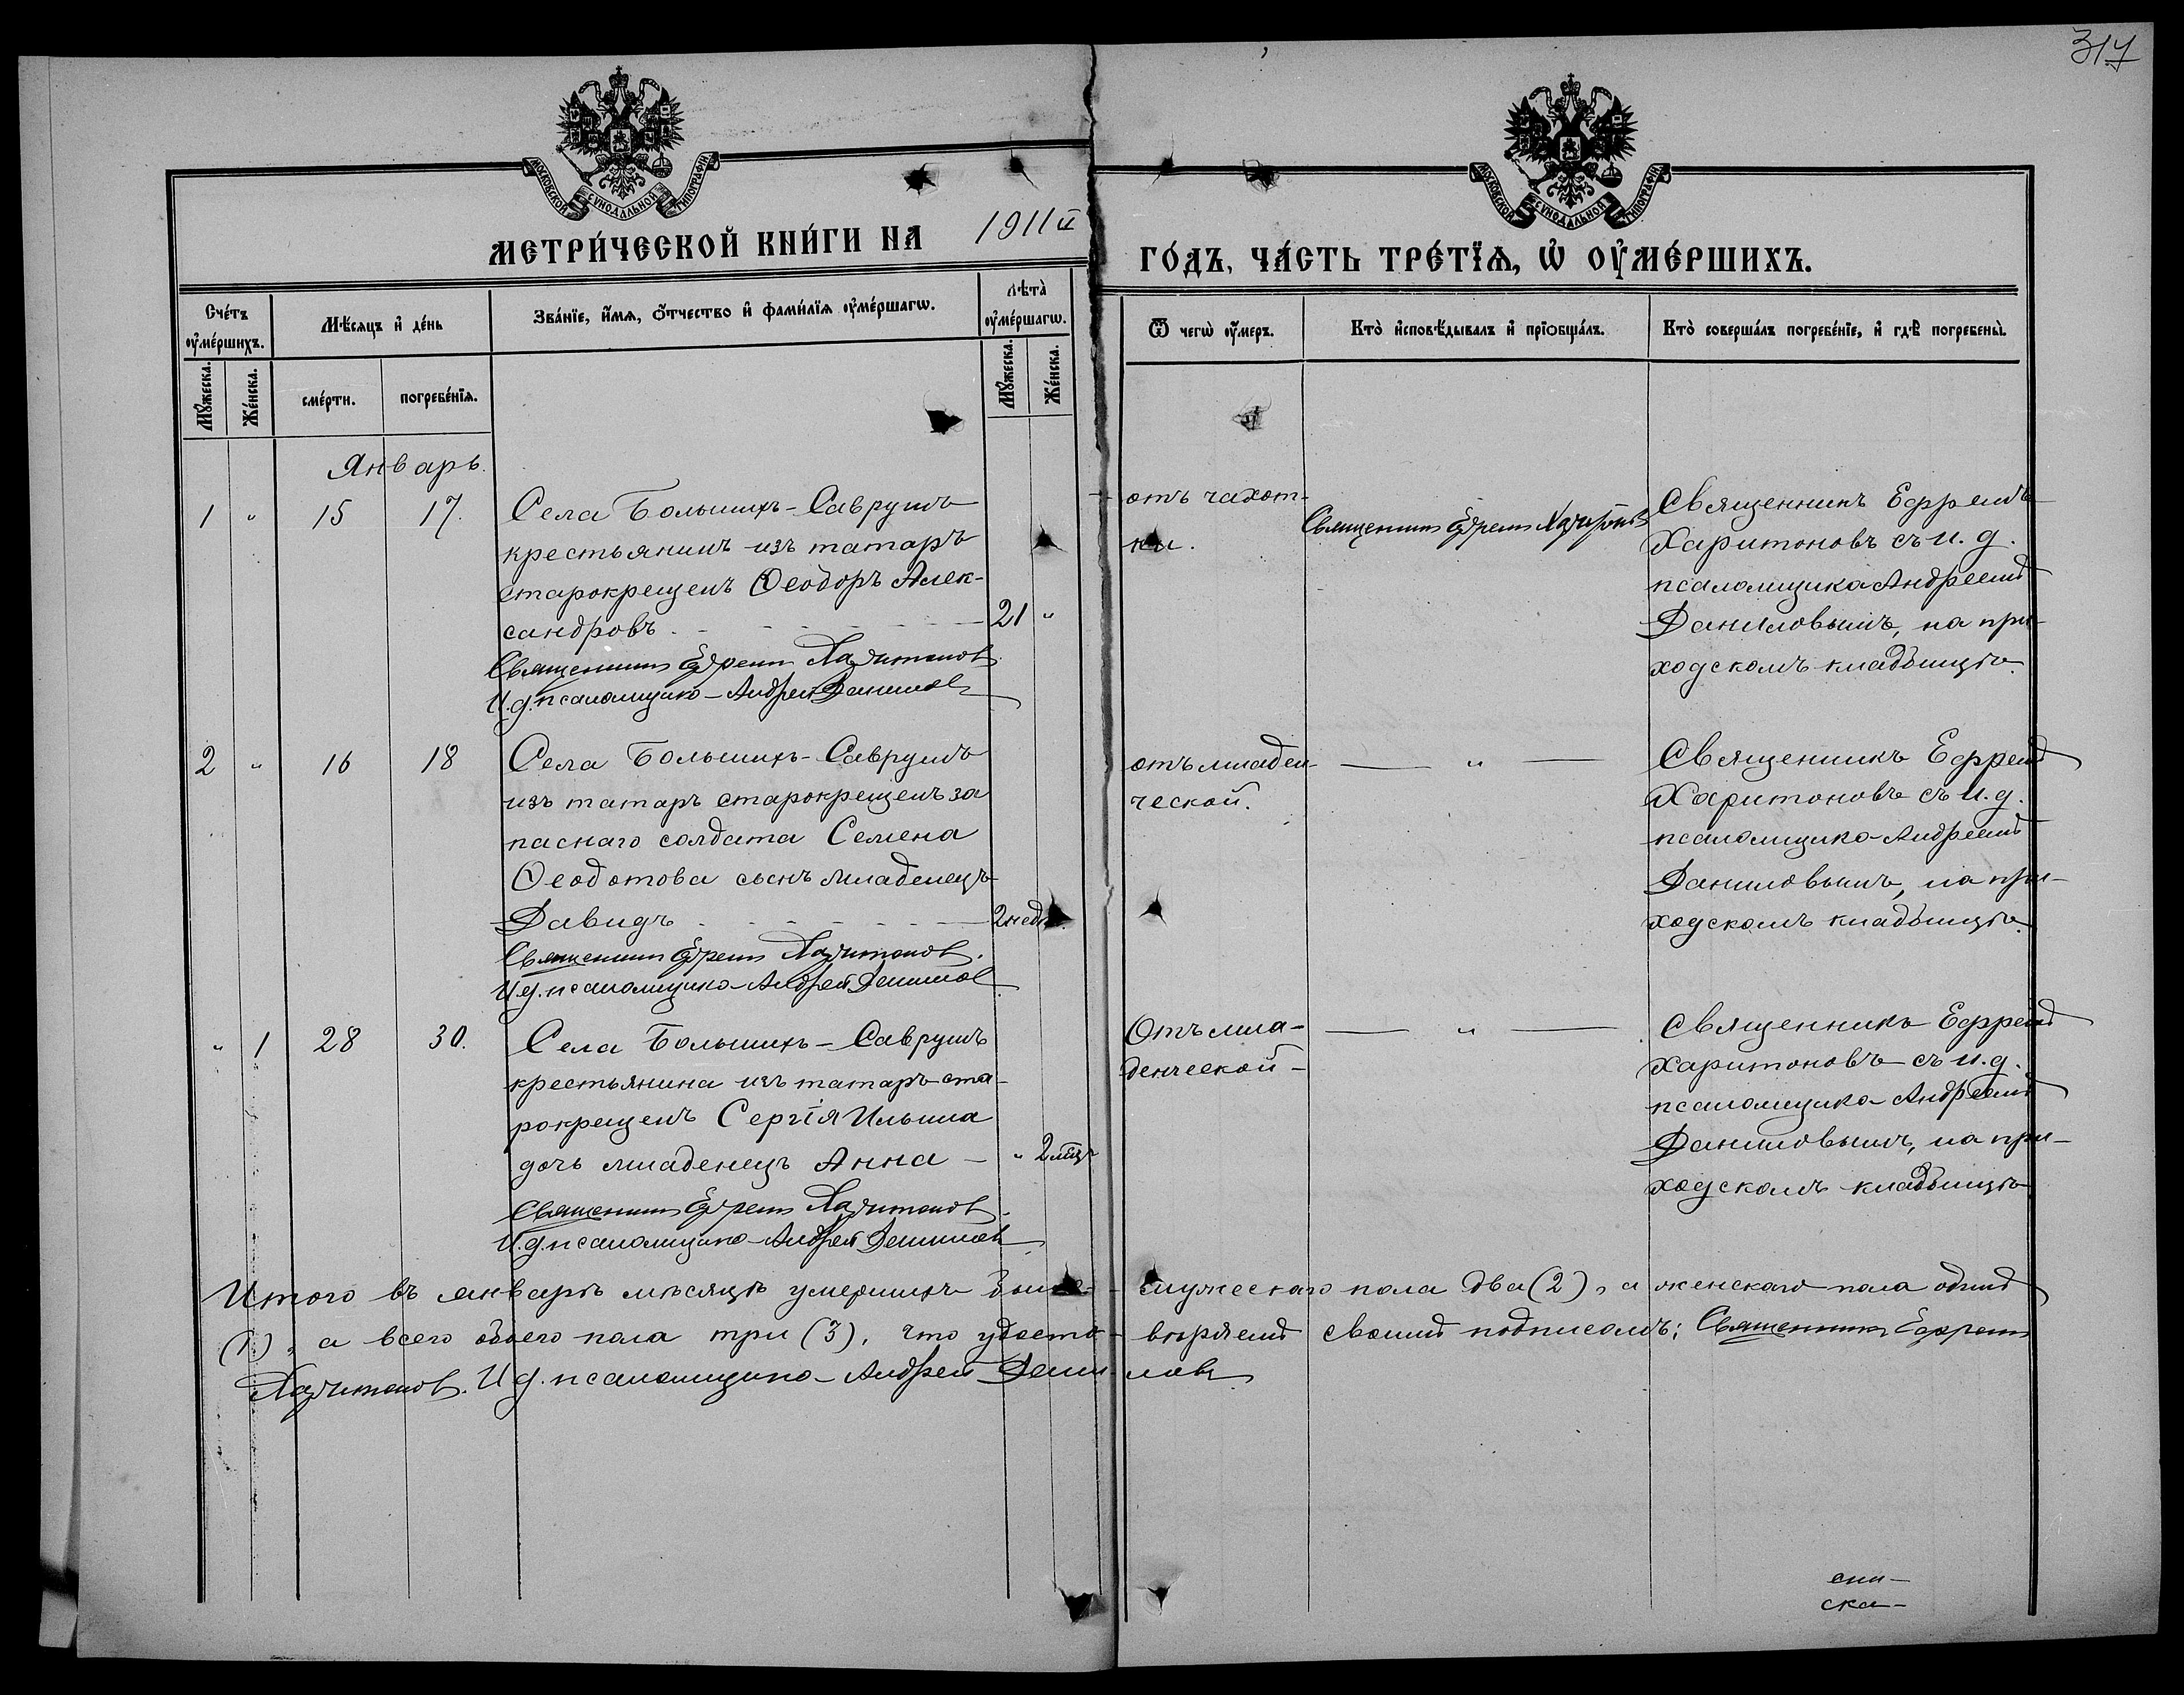 317
МОСКОВСКОЙ СѴНОДАЛЬНОЙ ТИПОГРАФІИ
МОСКОВСКОЙ СѴНОДАЛЬНОЙ ТИПОГРАФІИ
МЕТРИ́ЧЕСКОЙ КНИ́ГИ НА 1911й ГО́ДЪ, ЧА́СТЬ ТРЕ́ТЇѦ, Ѡ҆ ОУ҆МЕ́РШИХЪ.
Сче́тъ оу҆ме́ршихъ.
Мѣ́сяцъ и҆ де́нь
Зва́нїе, и҆́мѧ, ѻ҆́тчество и҆ фами́лїѧ оу҆ме́ршагѡ.
Лѣта̀ оу҆ме́ршагѡ.
Ѿ чегѡ̀ оу҆́меръ.
Кто̀ и҆сповѣ́дывалъ и҆ прїѻбща́лъ.
Кто̀ соверша́лъ погребе́нїе, и҆ гдѣ̀ погребены̀.
Мꙋ́жеска.
Же́нска.
сме́рти.
погребе́нїѧ.
Мꙋ́жеска.
Же́нска.
Январь.
1 " 15 17.
Села Большихъ-Саврушъ
крестьянинъ изъ татаръ
старокрещенъ Ѳеодоръ Алек-
сандровъ. 21 "
Священникъ Ефремъ Харитоновъ
И.д. псаломщика-Андрей Даниловъ
отъ чахот-
ки.
Священникъ Ефремъ Харитоновъ
Священникъ Ефремъ
Харитоновъ съ и. д.
псаломщика Андреемъ
Даниловымъ, на при-
ходскомъ кладбищѣ.
2 " 16 18
Села Большихъ-Саврушъ
изъ татаръ старокрещенъ за
паснаго солдата Семена
Ѳеодотова сынъ младенецъ
Давидъ 2 нед.
Священникъ Ефремъ Харитоновъ.
И.д. псаломщика-Андрей Даниловъ
отъ младен-
ческой.
— " —
Священникъ Ефремъ
Харитоновъ съ и.д.
псаломщика-Андреемъ
Даниловымъ, на при-
ходскомъ кладбищѣ.
" 1 28 30.
Села Большихъ-Саврушъ
крестьянина изъ татаръ ста-
рокрещенъ Сергія Ильина
дочь младенецъ Анна — " 2 мѣц
Священникъ Ефремъ Харитоновъ.
И.д. псаломщика-Андрей Даниловъ
Отъ мла-
денческой-
— " —
Священникъ Ефремъ
Харитоновъ съ и.д.
псаломщика-Андреемъ
Даниловымъ, на при-
ходскомъ кладбищѣ
Итого въ январѣ мѣсяцѣ умершихъ было- мужескаго пола два (2), а женскаго пола одинъ
(1), а всего обоего пола три (3), что удосто- вѣряемъ своимъ подписомъ: Священникъ Ефремъ
Харитоновъ. И.д. псаломщика-Андрей Дани- ловъ
ска-